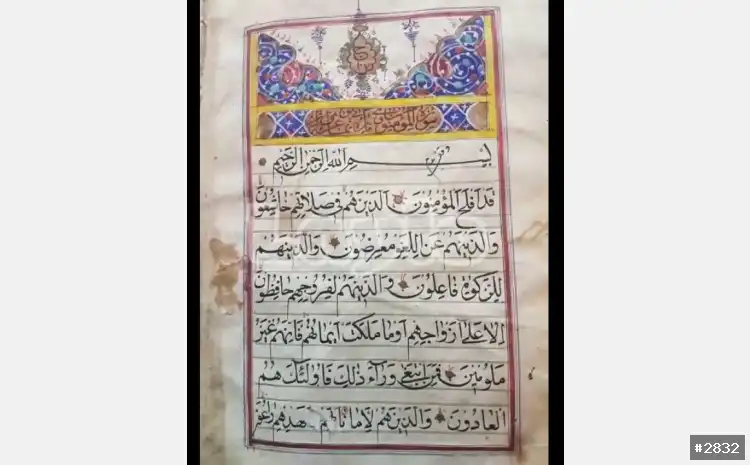 سورة المؤمنون
بسم الله الرحمن الرحيم
قد افلح المؤمنون الذين هم في صلاتهم خاشعون
والذين هم عن اللغو معرضون والذين هم
للزكوة فاعلون والذين هم لفروجهم حافظون
الا على ازواجهم او ما ملكت ايمانهم فانهم غير
ملومين فمن ابتغى ورآء ذلك فاولئك هم
العادون والذين هم لاماناتهم وعهدهم راعو
#2832